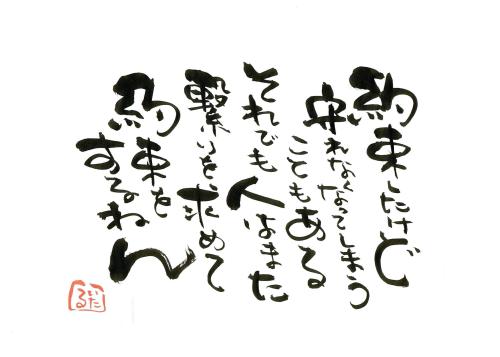 約束したけど
守れなくなってしまう
こともある
それでも人はまた
繋りを求めて
約束を
するねん